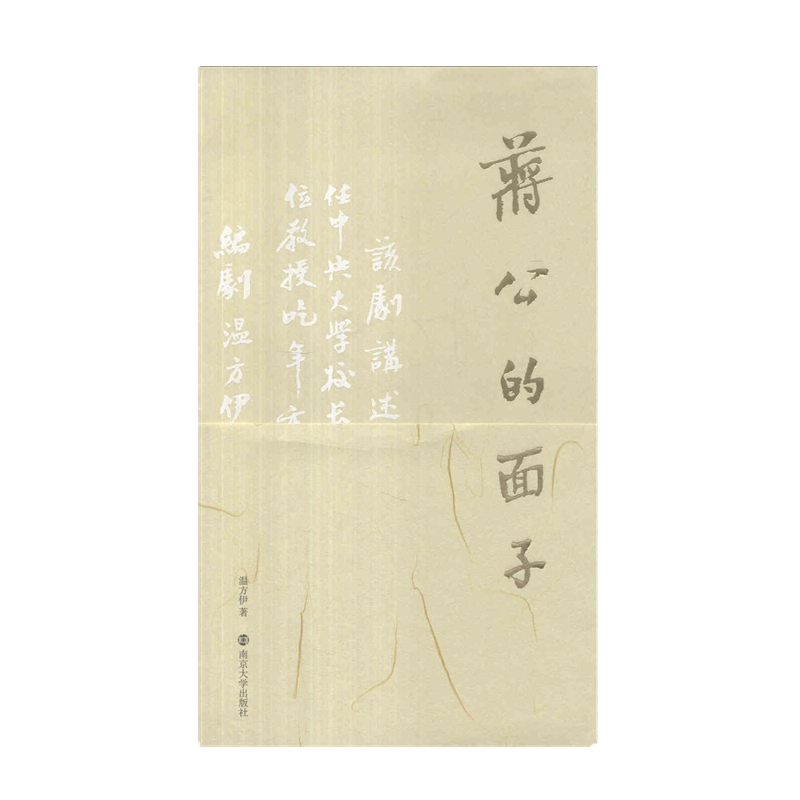 蔣公的面子
該劇講述
任中央大學校長
位教授吃年
編劇温方伊
温方伊 著
南京大学出版社